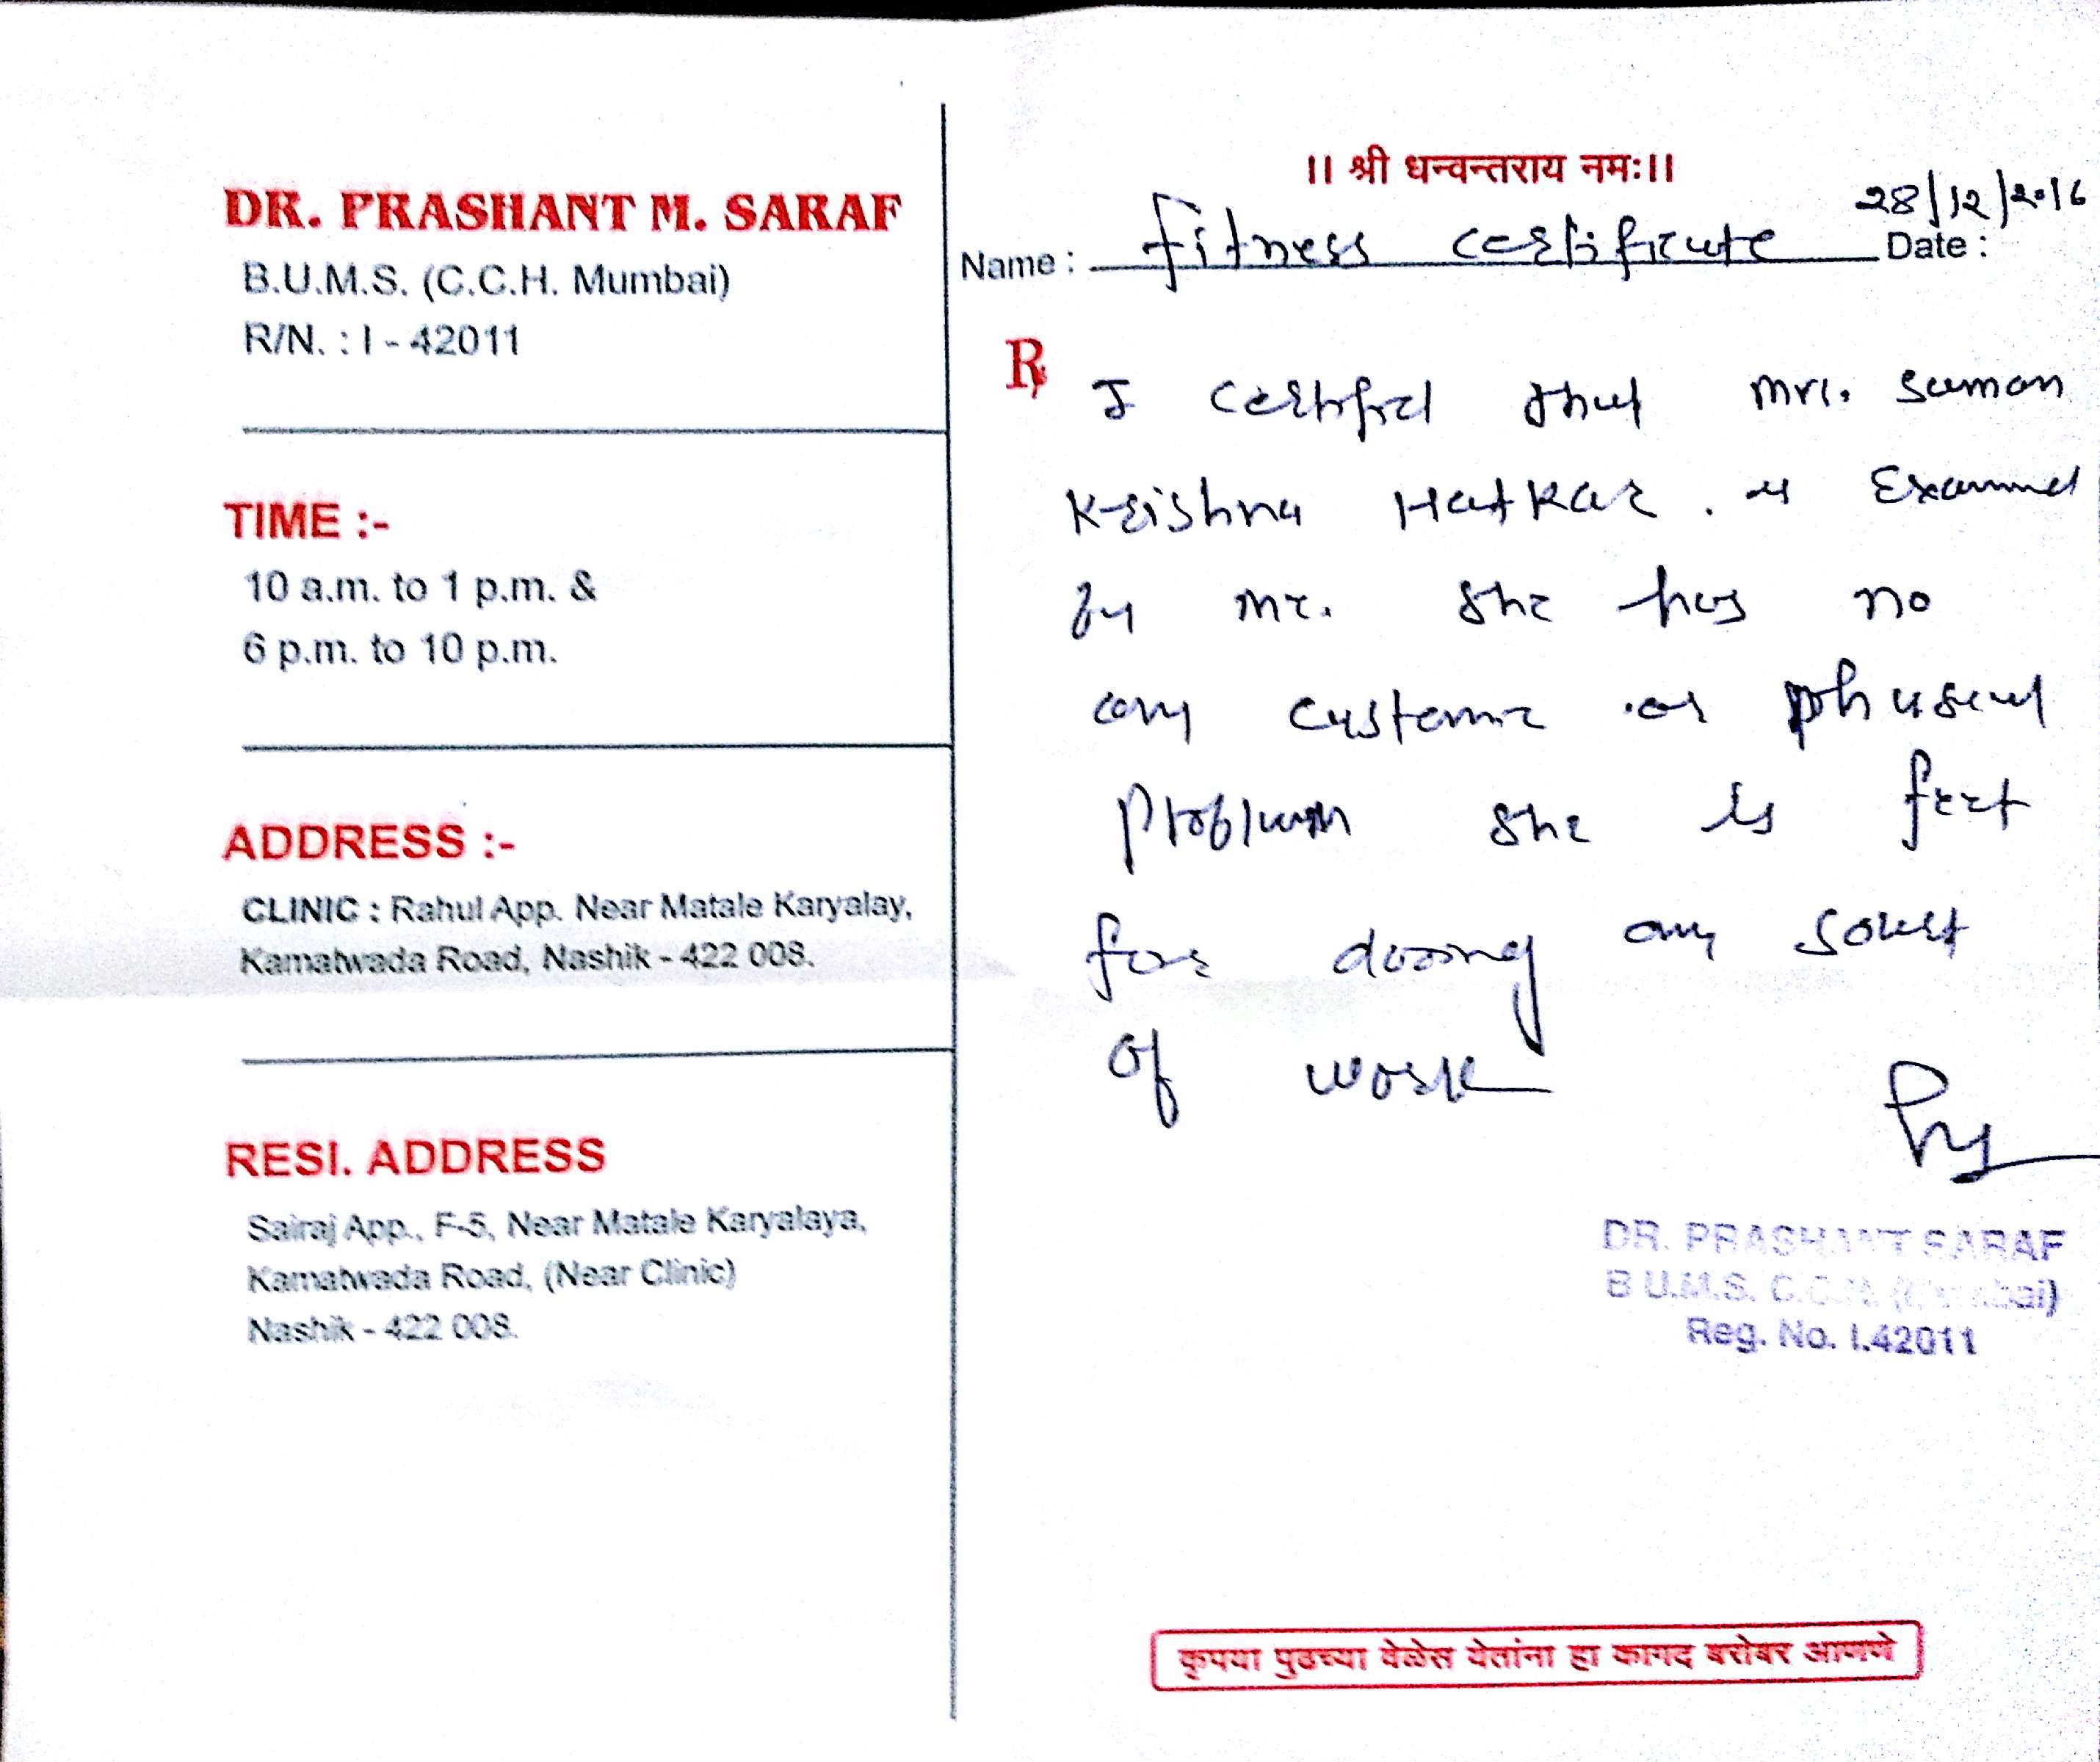 DR. PRASHANT M. SARAF
B.U.M.S. (C.C.H. Mumbai)
R/N. : I - 42011
TIME :-
10 a.m. to 1 p.m. &
6 p.m. to 10 p.m.
ADDRESS :-
CLINIC : Rahul App. Near Matale Karyalay,
Kamatwada Road, Nashik - 422 008.
RESI. ADDRESS
Sairaj App., F-5, Near Matale Karyalaya,
Kamatwada Road, (Near Clinic)
Nashik - 422 008.
।। श्री धन्वन्तराय नमः।।
28/12/2016
Name : Fitness certificate Date :
R
I certified that mrs. suman
Krishna Hatkar. is Examined
by me. she has no
any systemic or physical
problem she is feet
for dooing any sourt
of work
DR. PRASHANT SARAF
B.U.M.S. C.C.H. (Mumbai)
Reg. No. I.42011
कृपया पुढच्या वेळेस येतांना हा कागद बरोबर आणणे